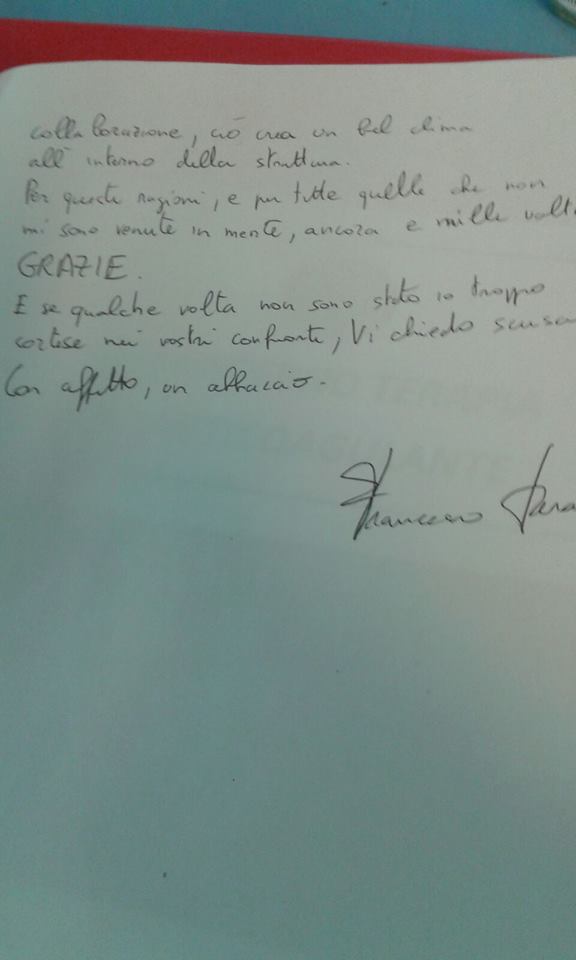 collaborazione, ciò crea un bel clima
all'interno della struttura.
Per queste ragioni, e per tutte quelle che non
mi sono venute in mente, ancora e mille volte
GRAZIE.
E se qualche volta non sono stato io troppo
cortese nei vostri confronti, Vi chiedo scusa
Con affetto, un abbraccio.
Francesco